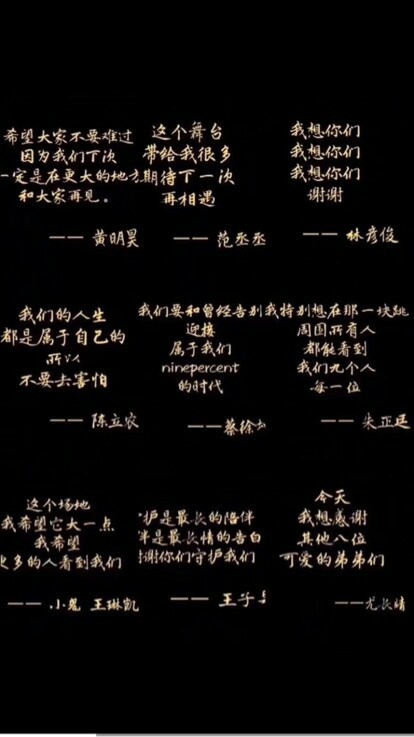 希望大家不要难过
因为我们下次
一定是在更大的地方
和大家再见。
—— 黄明昊
这个舞台
带给我很多
期待下一次
再相遇
—— 范丞丞
我想你们
我想你们
我想你们
谢谢
—— 林彦俊
我们的人生
都是属于自己的
所以
不要去害怕
—— 陈立农
我们要和曾经告别
迎接
属于我们
ninepercent
的时代
——蔡徐
我特别想在那一块跳
周围所有人
都能看到
我们九个人
每一位
—— 朱正廷
这个场地
我希望它大一点
我希望
更多的人看到我们
—— 小鬼 王琳凯
护是最长的陪伴
伴是最长情的告白
谢你们守护我们
—— 王子
今天
我想感谢
其他八位
可爱的弟弟们
——尤长靖